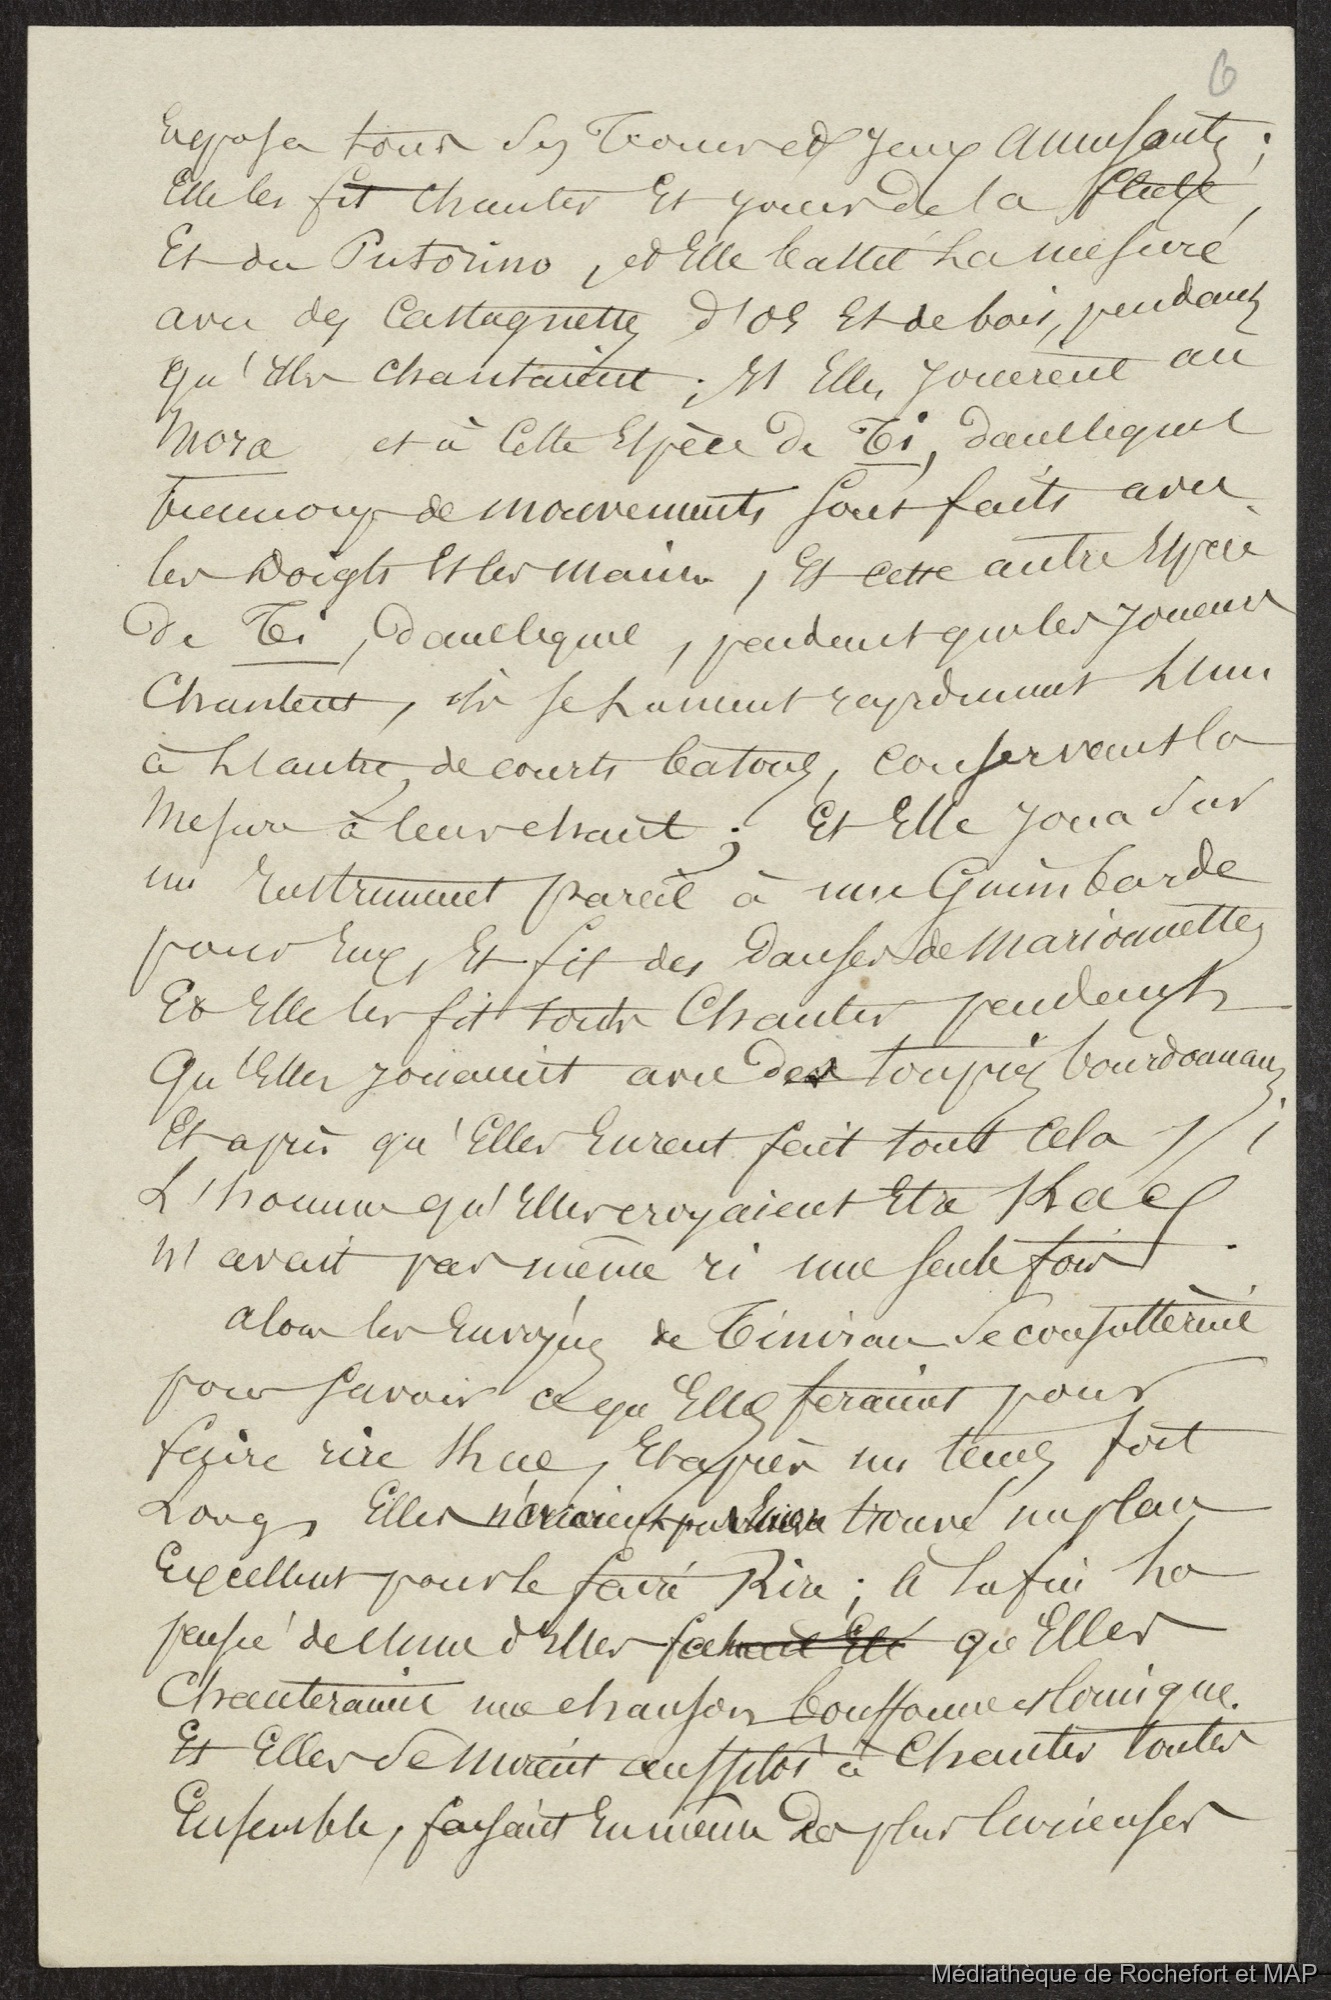 6
Exposa tous ses tours et jeux amusants ;
Elle les fit chanter Et jouer de la flute,
Et du Putorino, et Elle battit la mesure
avec des Castagnettes d'os Et de bois, pendant
qu'Ils chantaient ; Et Elles jouèrent au
Mora et à Cette Espèce de Ti, dans lequel
beaucoup de mouvements sont faits avec
les Doigts Et les mains, Et cette autre Espèce
De Ti, Dans lequel, pendant que les joueurs
Chantent, ils se lancent rapidement l'un
à l'autre de courts batons, conservant la
Mesure à leur chant ; Et Elle joua sur
un Instrument pareil à une Guimbarde
pour Eux, Et fit des Danses de Marionnettes
Et Elle les fit tous Chanter pendant
qu'Elles jouaient avec Des toupies bourdonnan
Et après qu'Elles Eurent fait tout Cela ;
L'homme qu'Elles croyaient Etre Kae
n'avait pas même ri une seule fois.
alors les Envoyées de Tinirau se consultèrent
pour savoir ce qu'Elles feraient pour
faire rire Kae, Et après un temps fort
Long, Elles n'avaient pas trouvé un plan
Excellent pour le faire Rire ; à la fin la
pensée de l'une d'Elles qu'Elles
Chanteraient une chanson bouffonne et Comique.
Et Elles se mirent aussitôt à Chanter toutes
Ensemble, faisant En même Des plus curieuses
Médiathèque de Rochefort et MAP